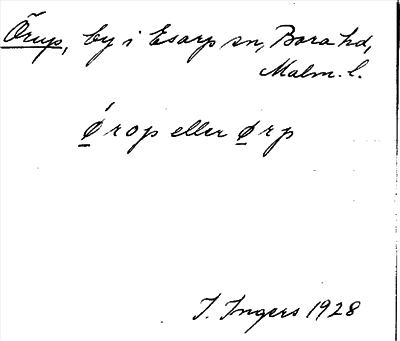 Örup, by i Esarp sn, Bara hd,
Malm. l.
Ǿrop eller Ørp
I. Ingers 1928